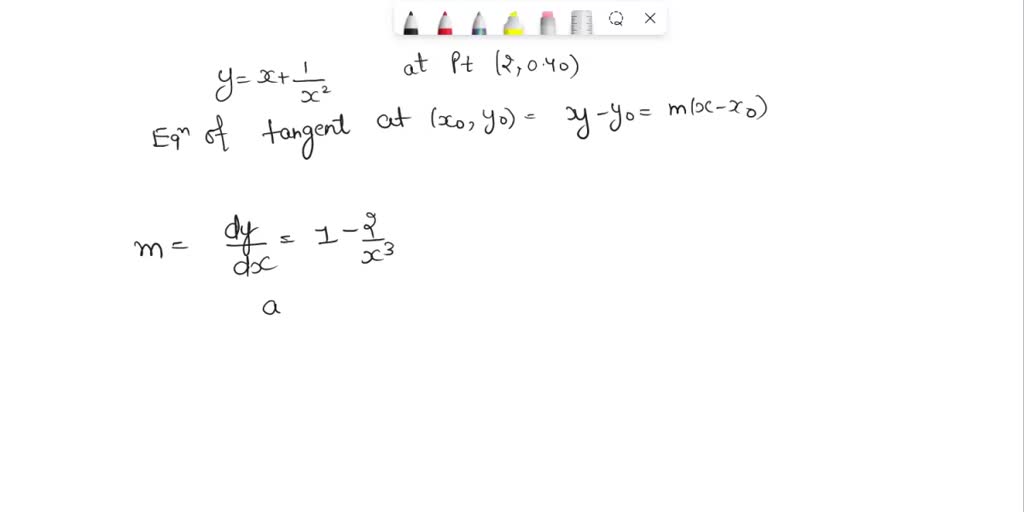 y = x + 1/x² at Pt (2, 0.40)
Eqⁿ of tangent at (x₀, y₀) = y - y₀ = m(x - x₀)
m = dy/dx = 1 - 2/x³
a